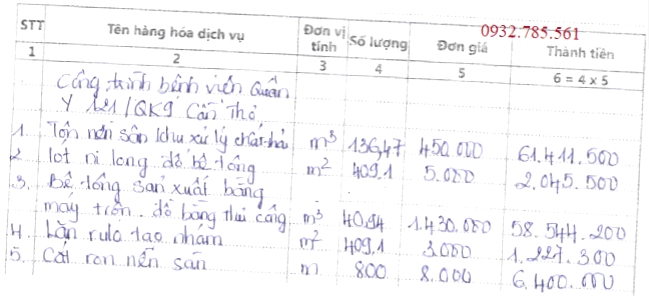 0932.785.561
STT Tên hàng hóa dịch vụ Đơn vị tính Số lượng Đơn giá Thành tiền
1 2 3 4 5 6 = 4 x 5
Công trình bệnh viện Quân
Y 121/QK9 Cần Thơ
1. Tôn nền sân khu xử lý chất thải m³ 136,47 450.000 61.411.500
2 lót ni long đổ bê tông m² 409,1 5.000 2.045.500
3. Bê tông sản xuất bằng
máy trộn. đổ bằng thủ công m³ 40,94 1.430.000 58.544.200
4. Lăn rulo tạo nhám m² 409,1 3.000 1.227.300
5. Cắt ron nền sân m 800 8.000 6.400.000